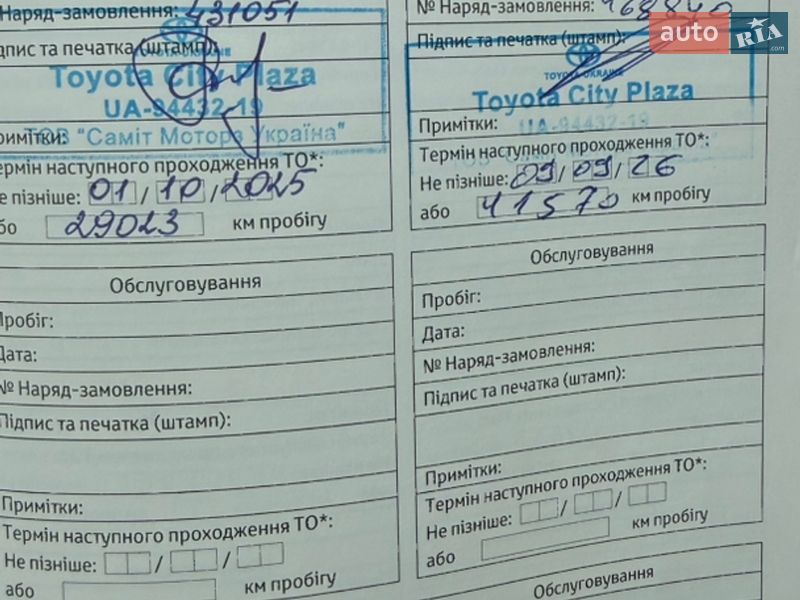 Наряд-замовлення: 431051
№ Наряд-замовлення:
auto RIA .com
Підпис та печатка (штамп):
Toyota City Plaza
UA-94432-19
ТОВ "Саміт Моторз Україна"
Примітки:
Термін наступного проходження ТО*:
Не пізніше: 01 / 10 / 2025
або 29023 км пробігу
Підпис та печатка (штамп):
TOYOTA-UKRAINE
Toyota City Plaza
UA-94432-19
Примітки:
Термін наступного проходження ТО*:
Не пізніше: 09 / 09 / 26
або 41570 км пробігу
Обслуговування
Пробіг:
Дата:
№ Наряд-замовлення:
Підпис та печатка (штамп):
Примітки:
Термін наступного проходження ТО*:
Не пізніше: / /
або км пробігу
Обслуговування
Пробіг:
Дата:
№ Наряд-замовлення:
Підпис та печатка (штамп):
Примітки:
Термін наступного проходження ТО*:
Не пізніше: / /
або км пробігу
Обслуговування